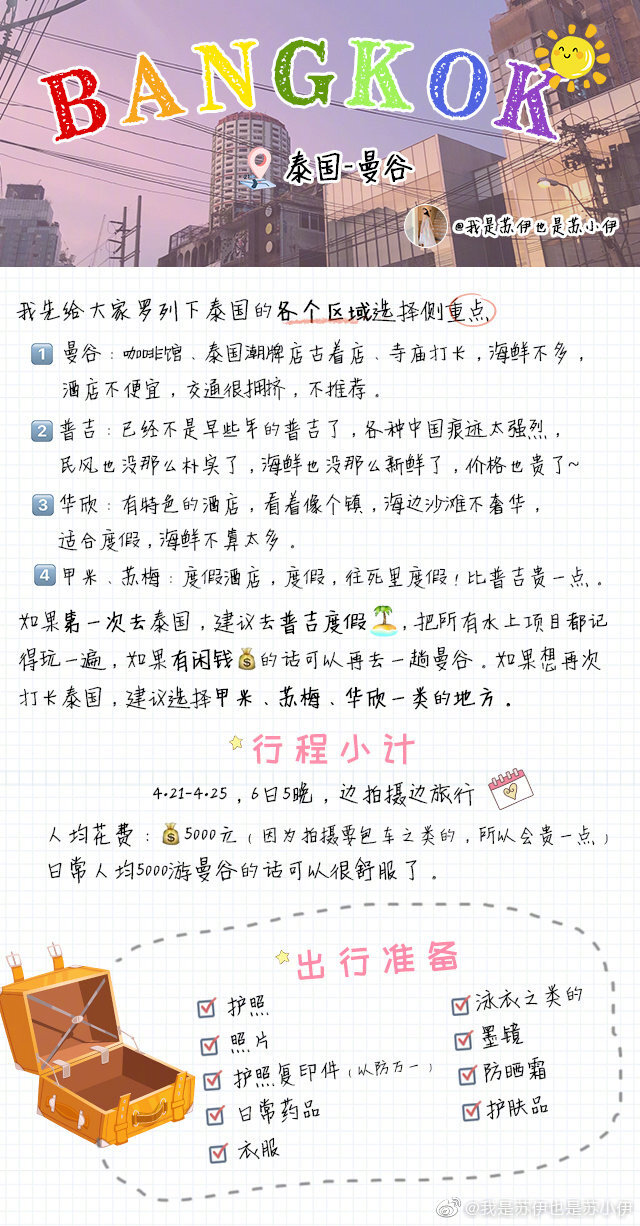 BANGKOK
泰国-曼谷
@我是苏伊也是苏小伊
我先给大家罗列下泰国的各个区域选择侧重点
1 曼谷：咖啡馆、泰国潮牌店古着店、寺庙打卡，海鲜不多，
酒店不便宜，交通很拥挤，不推荐。
2 普吉：已经不是早些年的普吉了，各种中国痕迹太强烈，
民风也没那么朴实了，海鲜也没那么新鲜了，价格也贵了~
3 华欣：有特色的酒店，看着像个镇，海边沙滩不奢华，
适合度假，海鲜不算太多。
4 甲米、苏梅：度假酒店，度假，往死里度假！比普吉贵一点。
如果第一次去泰国，建议去普吉度假🏝，把所有水上项目都记
得玩一遍，如果有闲钱💰的话可以再去一趟曼谷。如果想再次
打卡泰国，建议选择甲米、苏梅、华欣一类的地方。
行程小计
4.21-4.25，6日5晚，边拍摄边旅行
人均花费：💰5000元（因为拍摄要包车之类的，所以会贵一点）
日常人均5000游曼谷的话可以很舒服了。
出行准备
护照
照片
护照复印件（以防万一）
日常药品
衣服
泳衣之类的
墨镜
防晒霜
护肤品
@我是苏伊也是苏小伊